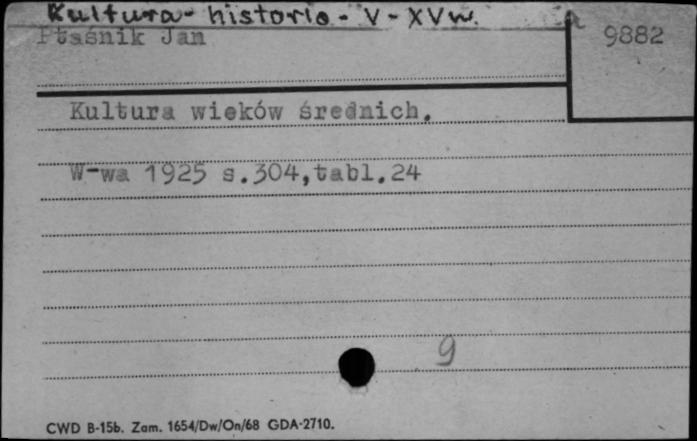 Kultura - historia - V - XV w.
Ptaśnik Jan
9882
Kultura wieków średnich.
W-wa 1925 s.304,tabl.24
9
CWD B-15b. Zam. 1654/Dw/On/68 GDA-2710.